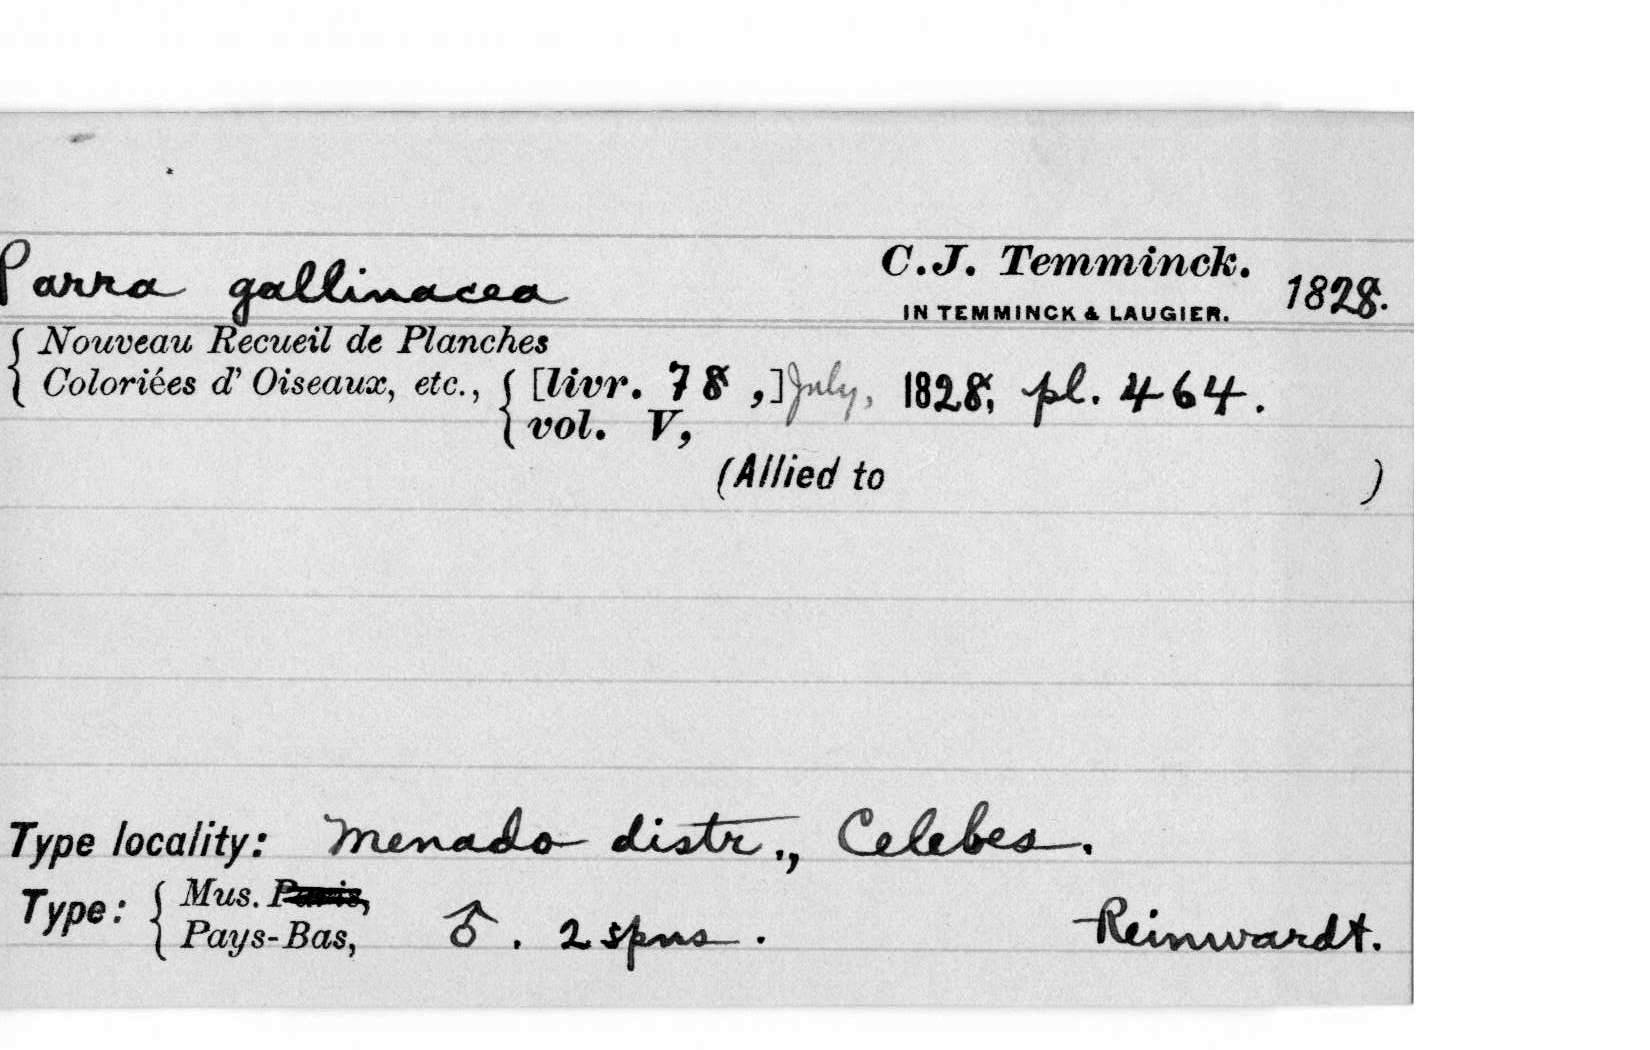 Parra gallinacea C.J. Temminck. 1828.
IN TEMMINCK & LAUGIER.
Nouveau Recueil de Planches
Coloriées d' Oiseaux, etc., [livr. 78 ,] July, 1828, pl. 464.
vol. V,
(Allied to )
Type locality: Menado distr., Celebes.
Type: Mus. Paris,
Pays-Bas, ♂. 2 spns. Reinwardt.